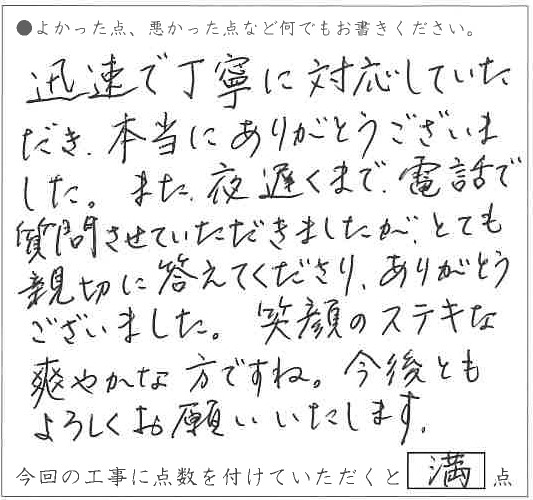 ●よかった点、悪かった点など何でもお書きください。
迅速で丁寧に対応していた
だき、本当にありがとうございま
した。また、夜遅くまで、電話で
質問させていただきましたが、とても
親切に答えてくださり、ありがとう
ございました。笑顔のステキな
爽やかな方ですね。今後とも
よろしくお願いいたします。
今回の工事に点数を付けていただくと 満 点